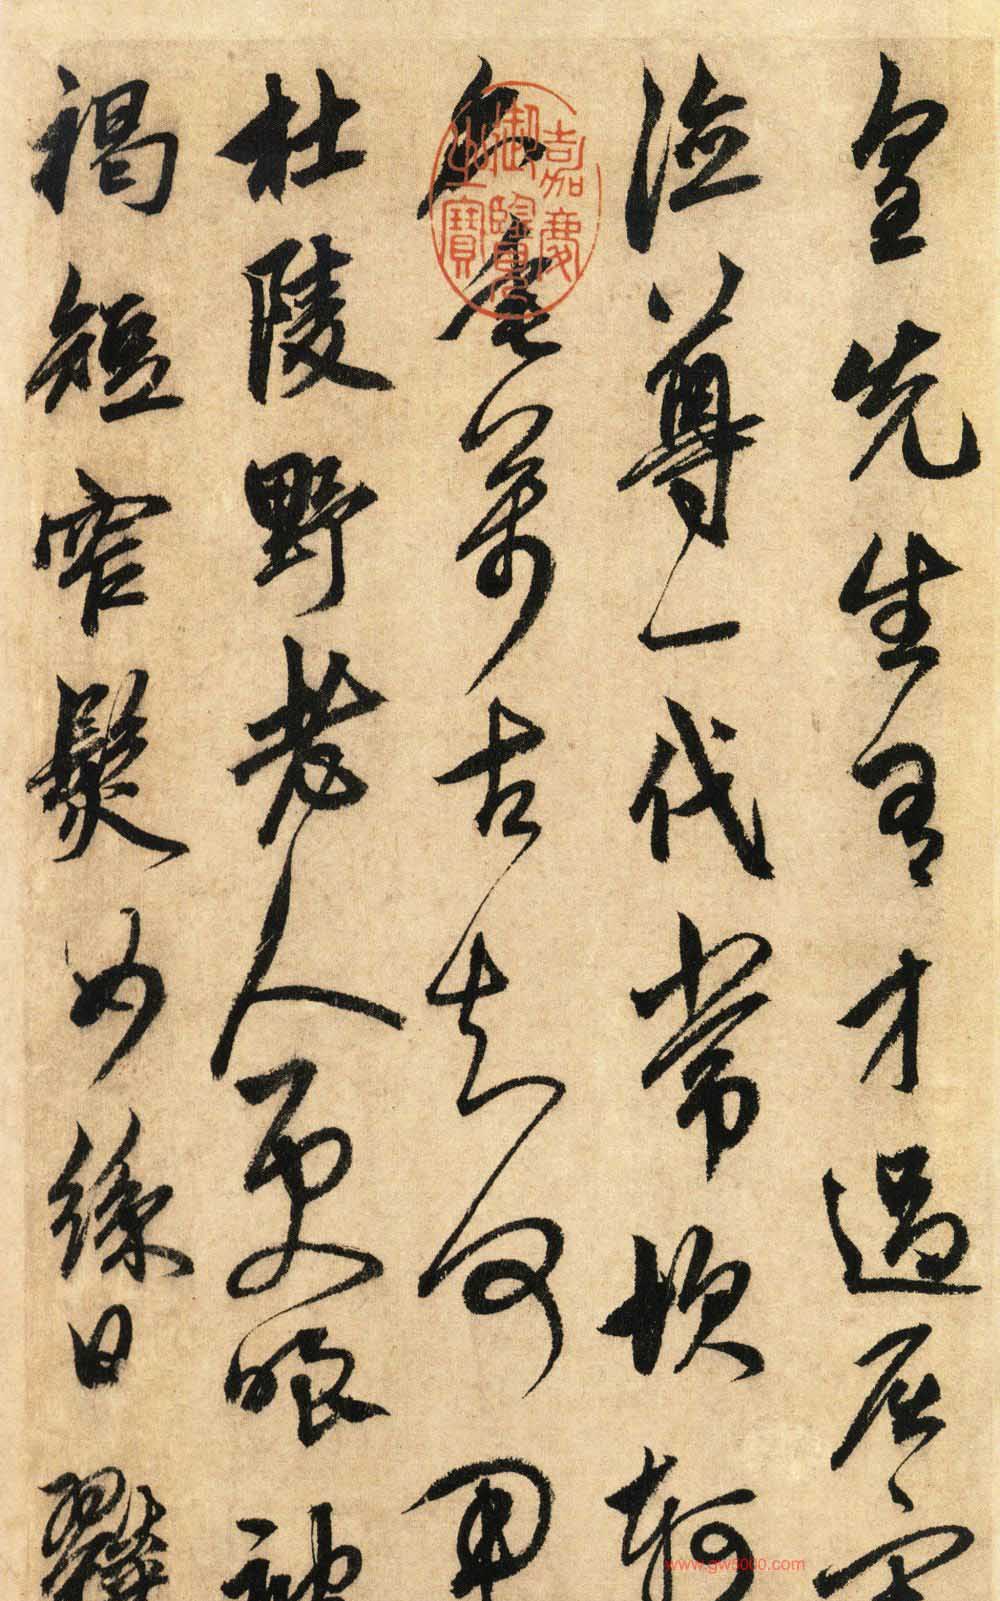 皇先生有才過屈宋
德尊一代常坎軻
名垂萬古知何用
杜陵野老人更嗤被
褐短窄鬢如絲日糴
嘉慶御覽之寶
www.gw5000.com